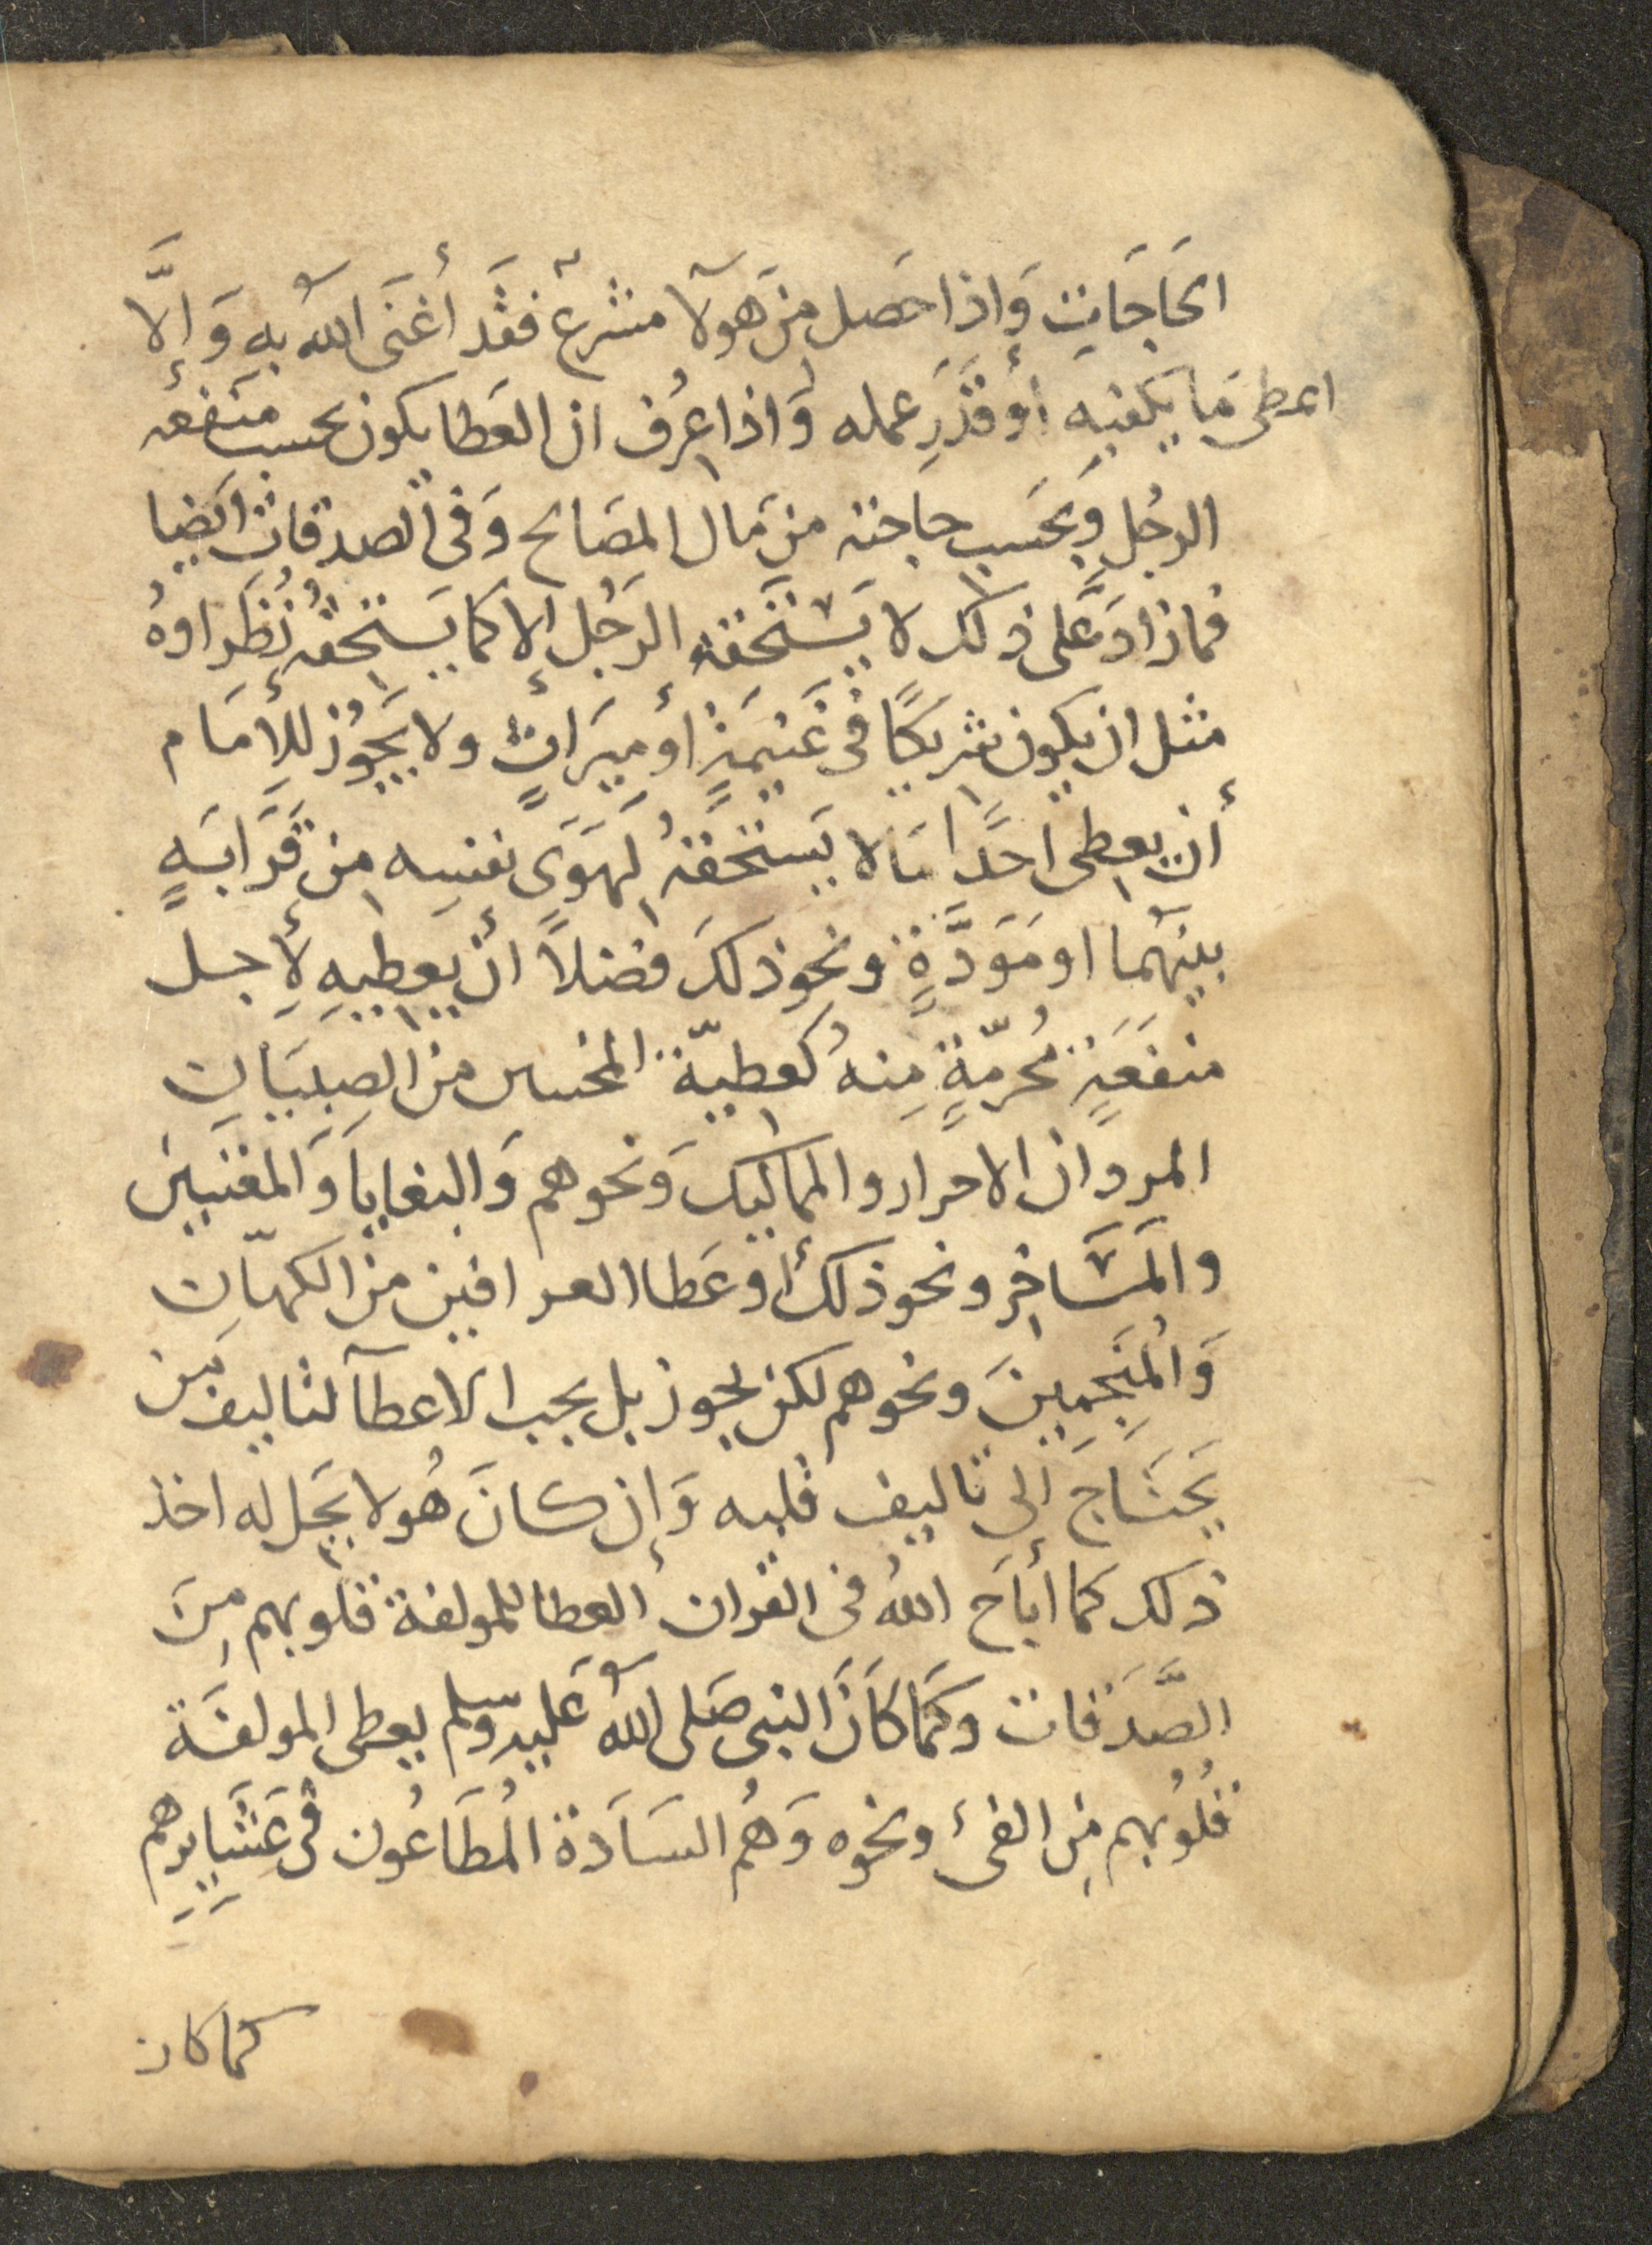 الحَاجَاتِ وَاذا حَصل مِن هولآ متشرعٌ فقَد أغنَى اللّٰه بهِ وَإلَّا
اعطى مَا يكفيهِ أو قَدَرِ عمله وَاذا عُرِف ان العَطا يكون بحسب منَفعه
الرجُل وَبحَسب حاجته من مَال المصَالح وَفى الصدقات ايَضا
فما زادَ عَلى ذلك لا يَسْتَحقهُ الرَجُل إلا كما يَستحِقهُ نُظَراوهُ
مثل ان يكون شرِيكًا فى غَنيمَةٍ أو ميرَاثٍ ولا يَجوُز للأِمَام
أن يعِطى احَداً مَا لا يَستحَقهُ لِهَوَى نفسِه مِن قَرَابَهٍ
بينهُما او مَوَدَّةٍ ونحوِ ذلكَ فضلاً أن يعِطيهِ لأِجل
منفعَةٍ مُحرمّةٍ مِنهُ كعَطِيّة المخنس من الصِبيَانِ
المردوان الاحرار والمماليك وَنحوهم وَالبغايَا وَالمغنيين
والمَسَاخِر ونحو ذلك أو عَطا العرافين من الكهّان
وَالمُنَجِمينَ ونحوهم لكن يجوز بل يجب الاعطآ لتاليف مَن
يَحتَاجَ إلى تاليف قلبه وَإن كانَ هُو لا يَحِل له اخذ
ذلك كما أباَح اللّٰهُ فى القران العطا للمولفة قلوبهم مِنَ
الصَّدَقات وَكمَا كاَنَ النبى صَلى اللّٰهُ عَليه وسلم يعطى المولفَة
قلُوُبهم مِن الفىء ونحوه وَهُم السَادَة المُطَاعُون فى عَشَايِرِهم
كما كان